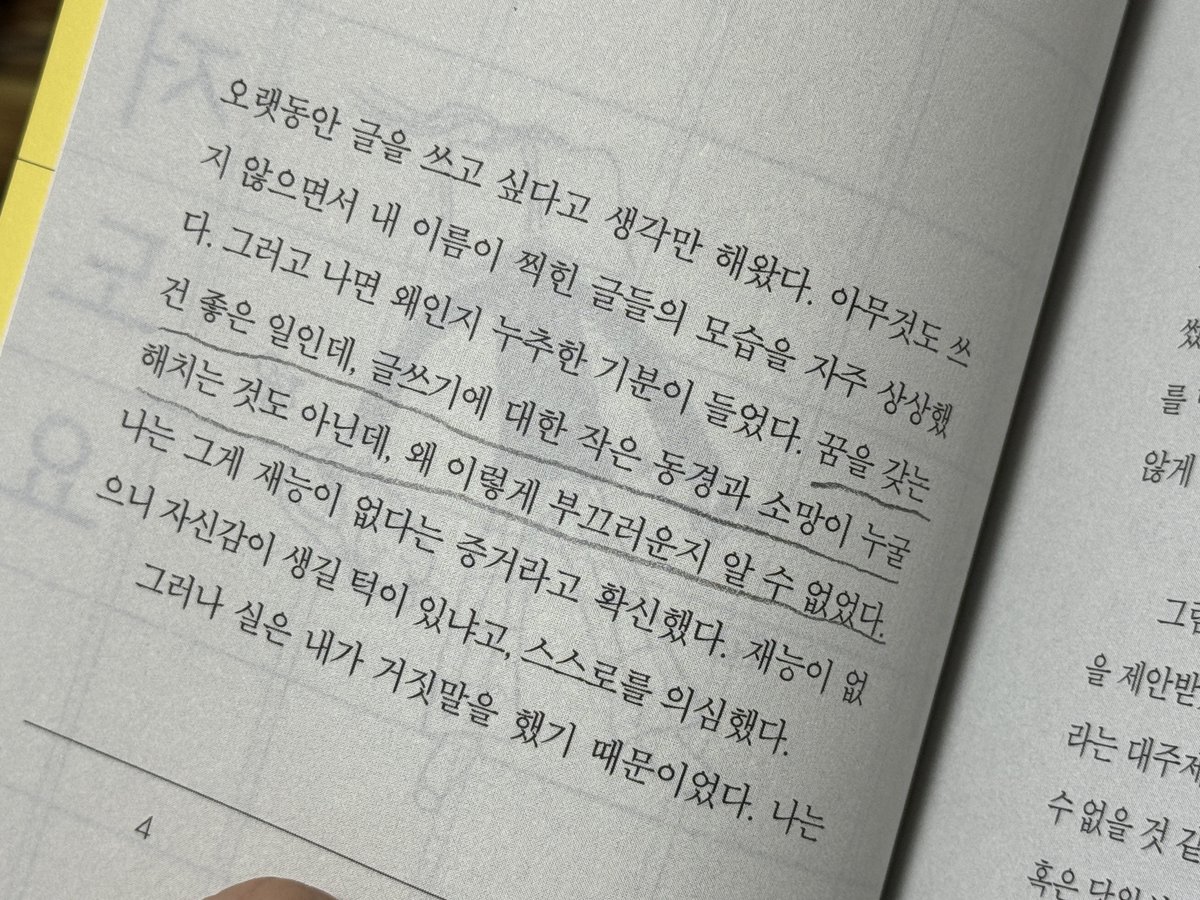 오랫동안 글을 쓰고 싶다고 생각만 해왔다. 아무것도 쓰
지 않으면서 내 이름이 찍힌 글들의 모습을 자주 상상했
다. 그러고 나면 왜인지 누추한 기분이 들었다. 꿈을 갖는
건 좋은 일인데, 글쓰기에 대한 작은 동경과 소망이 누굴
해치는 것도 아닌데, 왜 이렇게 부끄러운지 알 수 없었다.
나는 그게 재능이 없다는 증거라고 확신했다. 재능이 없
으니 자신감이 생길 턱이 있냐고, 스스로를 의심했다.
그러나 실은 내가 거짓말을 했기 때문이었다. 나는
4
를
않게
을 제안받
라는 대주제
수 없을 것 같